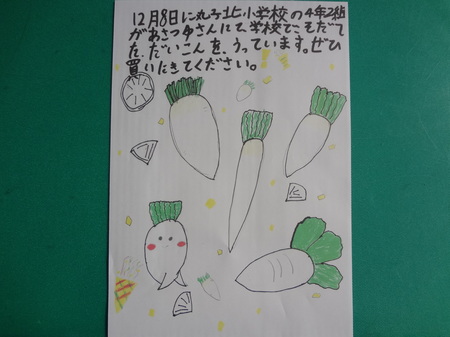 12月8日に丸子北小学校の4年2組
があさつゆさんにて、学校でこそだて
た、だいこんを、うっています。ぜひ
買いにきてください。